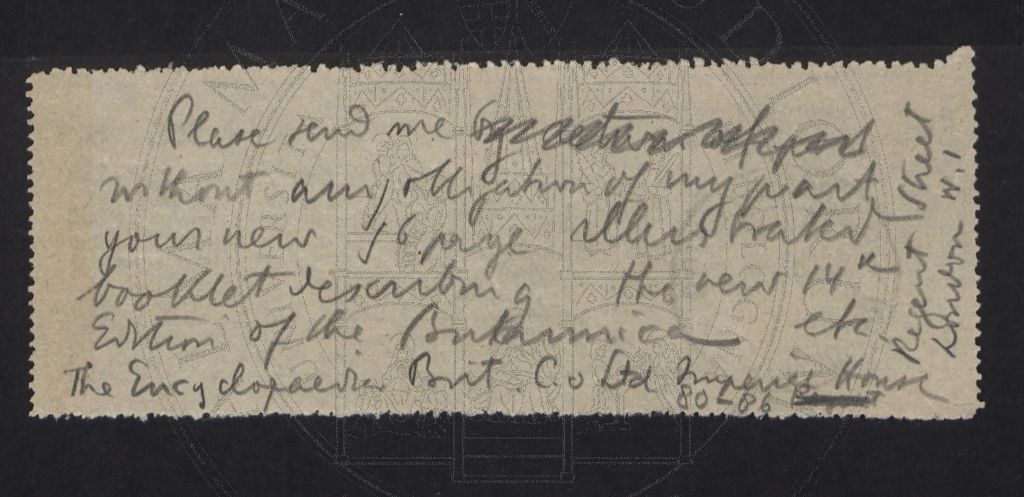 Please send me
without any obligation of my part
your new 76 page illustrated
booklet describing the new 14th
Edition of the Britannica etc
The Encyclopaedia Brit. Co Ltd Imperial House
80-86
Regent Street
London W.1